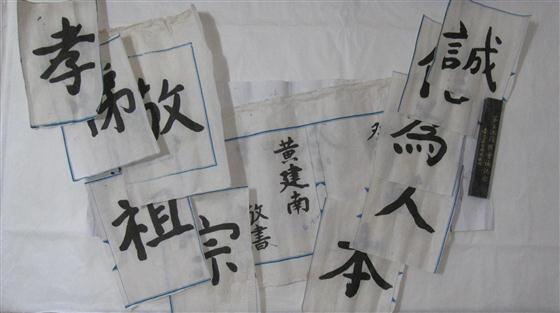 孝弟敬祖宗
誠信為人本
黃建南
敬書